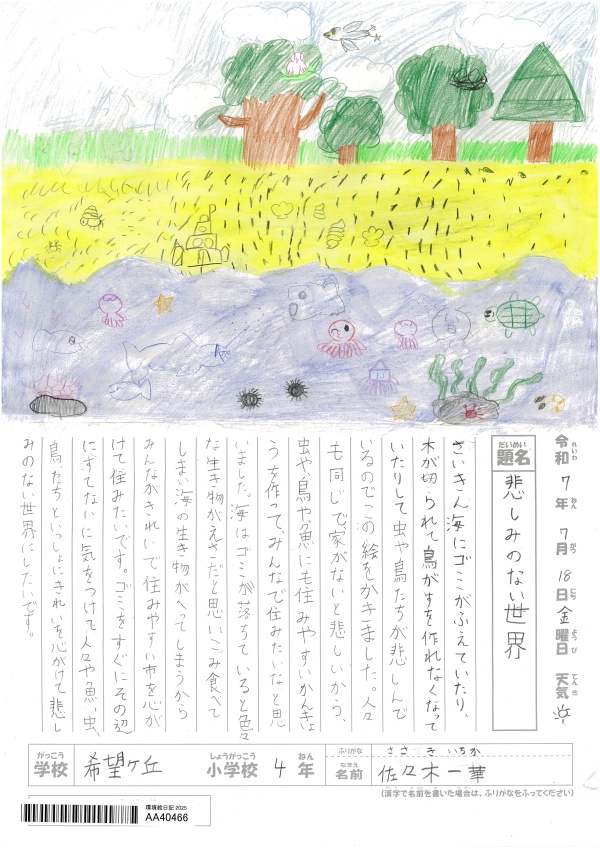 令和7年7月18日金曜日 天気
れいわ ねん がつ にち ようび てんき
だいめい
題名 悲しみのない世界
さいきん海にゴミがふえていたり、
木が切られて鳥がすを作れなくなって
いたりして虫や鳥たちが悲しんで
いるのでこの絵をかきました。人々
も同じで家がないと悲しいから、
虫や鳥や魚にも住みやすいかんきょ
うを作って、みんなで住みたいなと思
いました。海はゴミが落ちていると色々
な生き物がえさだと思いこみ食べて
しまい海の生き物がへってしまうから
みんながきれいで住みやすい市を心が
けて住みたいです。ゴミをすぐにその辺
にすてないに気をつけて人々や魚、虫、
鳥たちといっしょにきれいを心がけて悲し
みのない世界にしたいです。
がっこう しょうがっこう ねん
学校 希望ケ丘 小学校 4年
ふりがな ささき いちか
なまえ
名前 佐々木一華
(漢字で名前を書いた場合は、ふりがなをふってください)
環境絵日記 2025
AA40466